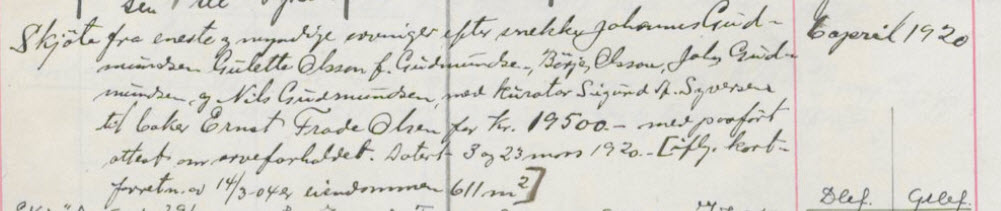 Skjöte fra eneste og myndige arvinger efter snekker Johannes Gud- 6 april 1920
mundsen Gulette Olsson f. Gudmundsen, Börje Olsson, John Gud-
mundsen, og Nils Gudmundsen, med kurator Sigurd A. Syversen
til baker Ernst Frode Olsen for kr. 19500.- med paaført
attest om arveforholdet. Datert 3 og 23 mars 1920.- [iflg. kart-
forretn. av 14/3-04 er eiendommen 611 m²]